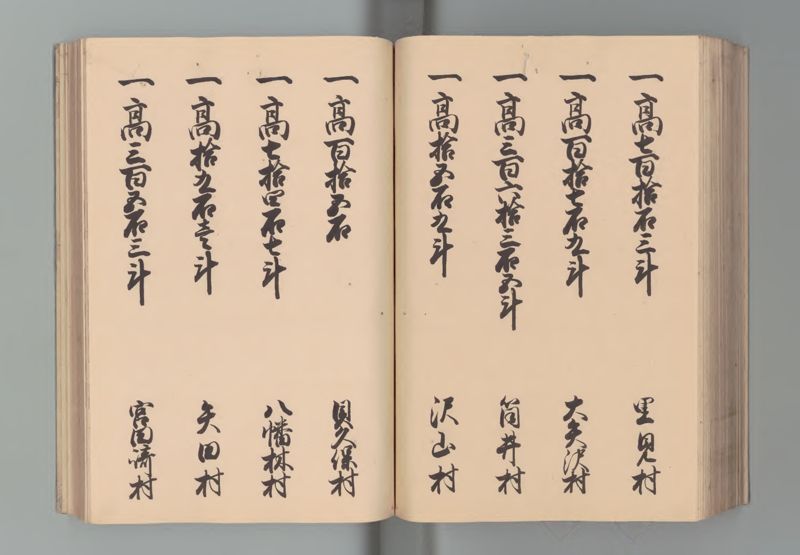 一 高七百拾石三斗 里見村
一 高百拾七石九斗 大矢沢村
一 高三百六拾三石五斗 筒井村
一 高拾五石九斗 沢山村
一 高百拾五石 田久保村
一 高七拾四石七斗 八幡林村
一 高拾九石壱斗 矢田村
一 高三百五石三斗 宮田村